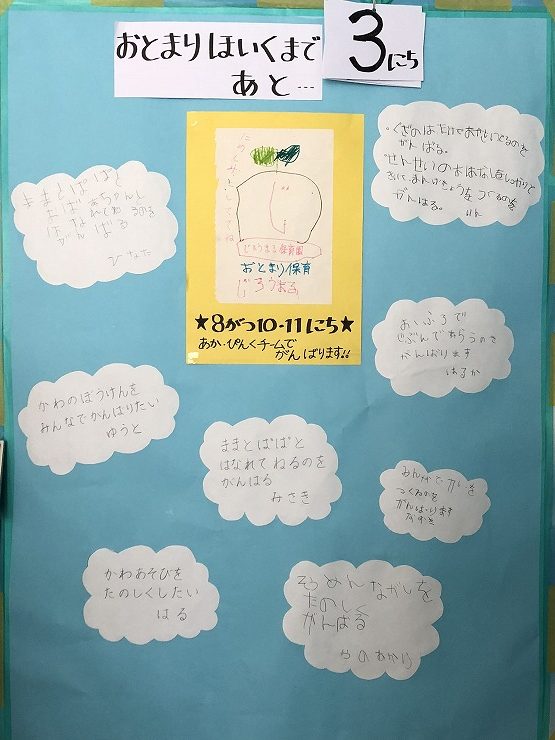 おとまりほいくまで
あと…
3にち
たのしみをしててね
じろうまる保育園
おとまり保育
じろうまる
★8がつ10-11にち★
あか・ぴんくチームで
がんばります!!
ままとぱぱと
ばぁちゃんと
はなれてねるのを
がんばる
ひなた
がんばる。
せんせいのおはなしをしっかり
きいてまんげきょうをつくるのを
がんばる。
おふろで
じぶんであらうのを
がんばります
はるか
かわのぼうけんを
みんなでがんばりたい
ゆうと
ままとぱぱと
はなれてねるのを
がんばる
みさき
みんなで
つくるのを
がんばります
かわあそびを
たのしくしたい
はる
そうめんながしを
たのしく
がんばる
やのあかり